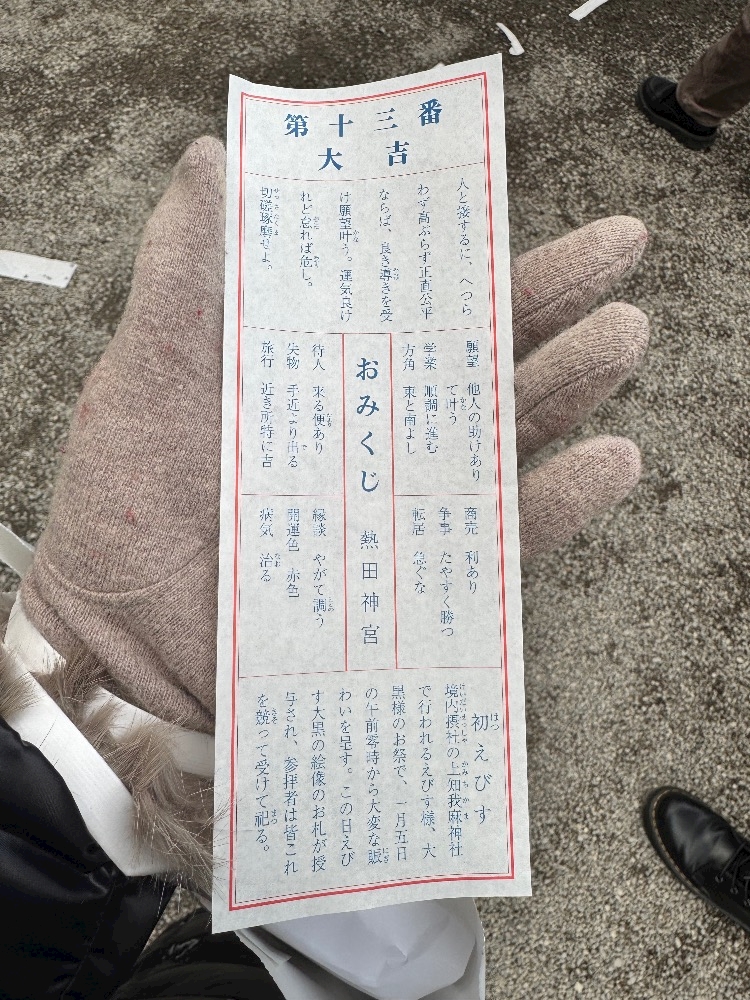 第十三番
大吉
人と接するに、へつら
わず高ぶらず正直公平
ならば、良き導きを受
け願望叶う。運気良け
れど怠れば危し。
切磋琢磨せよ。
願望 他人の助けあり
て叶う
学業 順調に進む
方角 東と南よし
おみくじ 熱田神宮
待人 来る便あり
失物 手近より出る
旅行 近き所特に吉
商売 利あり
争事 たやすく勝つ
転居 急ぐな
縁談 やがて調う
開運色 赤色
病気 治る
初えびす
境内摂社の上知我麻神社
で行われるえびす様、大
黒様のお祭で、一月五日
の午前零時から大変な賑
わいを呈す。この日えび
す大黒の絵像のお札が授
与され、参拝者は皆これ
を競って受けて祀る。